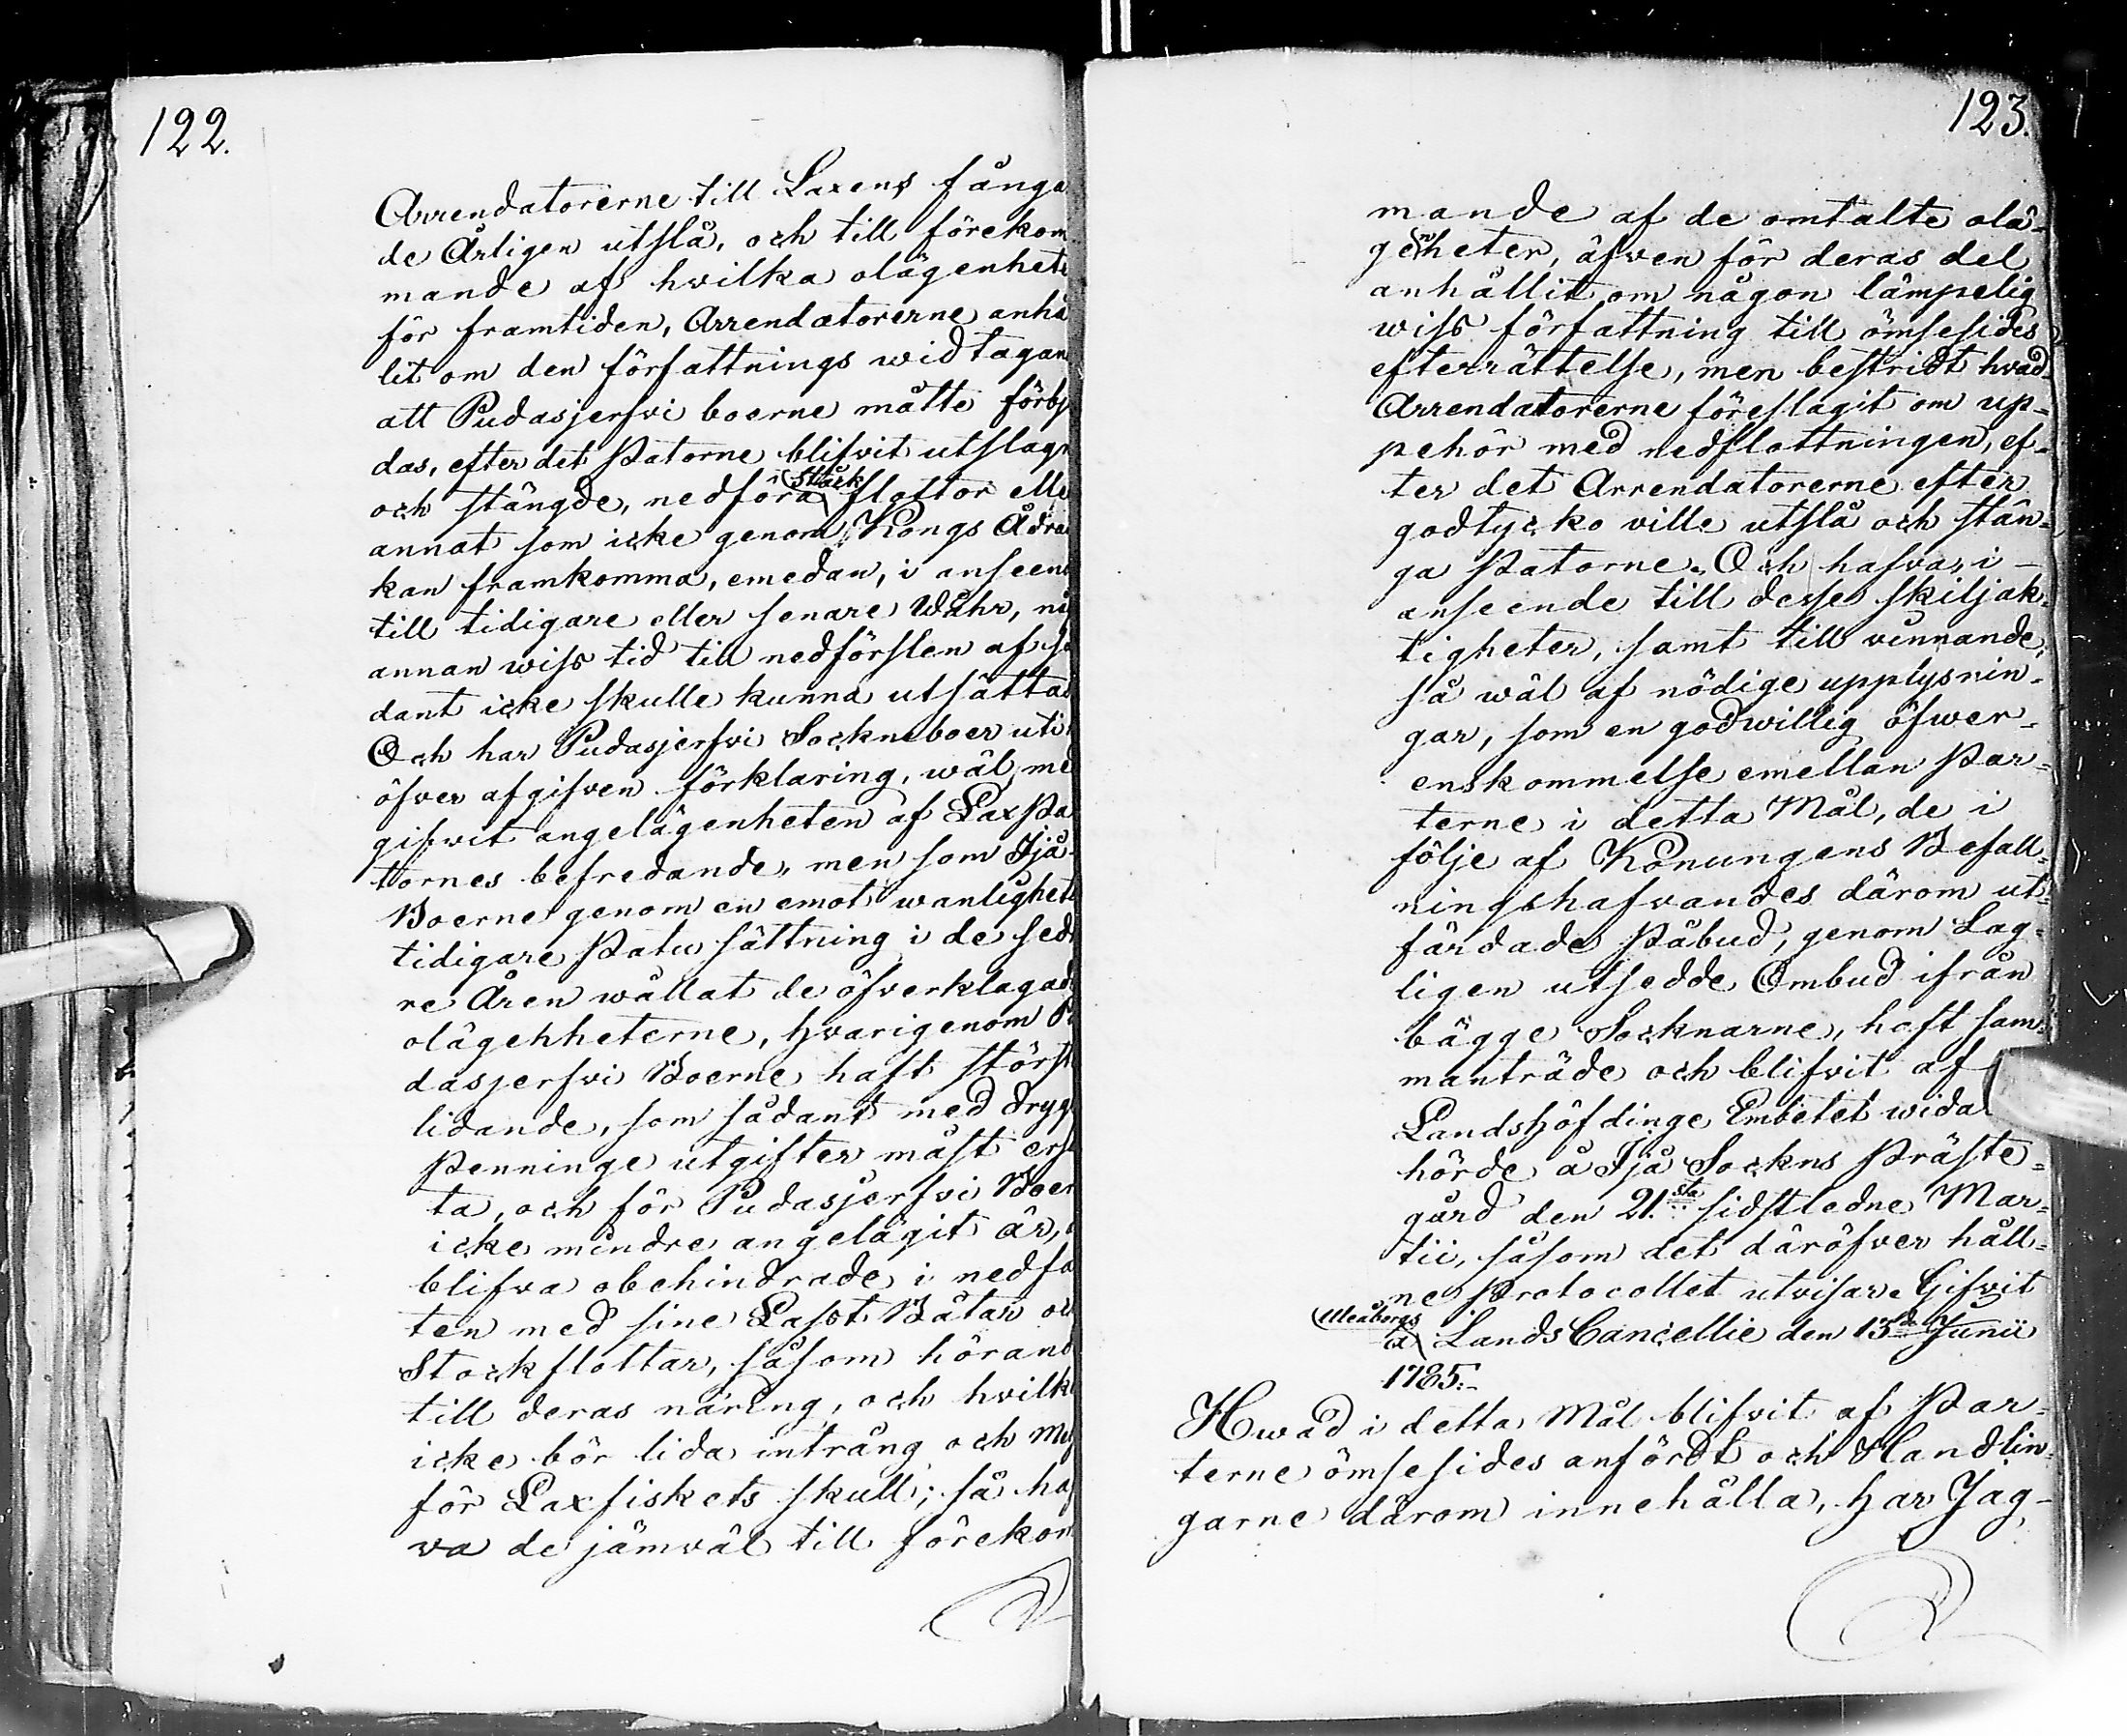 122.
Arrendatorerne till Laxens fånga
de Årligen utslå, och till förekom
mande af hvilka olägenhete
för framtiden, Arrendatorerne anhå
lit om den författnings widtagan
att Pudasjerfvi boerne måtte förbj
das, efter det Patorne blifvit utslagn
Stock
och stängde, nedföra flottor elle
annat som icke genom Kongs Ådra
kan framkomma, emedan, i anseend
till tidigare eller senare Wåhr, nå
annan wiss tid till nedförslen af så
dant icke skulle kunna utsättas
Och har Pudasjerfvi Sockneboer uti
öfver afgifven förklaring, wäl me
gifwit angelägenheten af Laxpa
tornes befredande, men som Ijå
Boerne genom en emot wanlighete
tidigare Patu sättning i de sed
re Åren wållat de öfverklagad
olägenheterne, hvarigenom P
dasjerfvi Boerne haft störst
lidande, som sådant med dryg
Penninge utgifter måst ersä
ta, och för Pudasjerfvi Boer
icke mindre angelägit är,
blifva obehindrade i nedfa
ten med sine Last Båtar oc
Stockflottar, såsom hörand
till deras näring, och hvilk
icke bör lida intrång och
för Laxfiskets skull; så haf
va de jämwäl till förekom
123.
mande af de omtalte olä-
genheter, äfwen för deras del
anhållit om någon lämpelig
wiss författning till ömsesides
efterrättelse, men bestridt hvad
Arrendatorerne föreslagit om up-
pehör med nedflottningen, ef-
ter det Arrendatorerne efter
godtycko ville utslå och stän-
ga Patorne. Och hafva, i
anseende till desse skiljak-
tigheter, samt till vinnande,
så wäl af nödige upplysnin-
gar, som en godwillig öfwer-
enskommelse emellan Par-
terne i detta Mål, de i
följe af Konungens Befall-
ningshafvandes därom ut-
färdade Påbud, genom Lag-
ligen utsedde Ombud ifrån
bägge Socknarne, haft sam-
manträde och blifvit af
Landshöfdinge Embetet wida
hörde å Ijå Sockns Präste-
gård den 21.sta sidstledne Mar-
tii, såsom det däröfver håll-
ne Protocollet utvisar. Gifvit
Uleåborgs
å Lands Cancellie den 13de Junii
1785.-
Hwad i detta Mål blifvit af Par-
terne ömsesides anfördt och Handlin-
garne därom innehålla, har Jag-